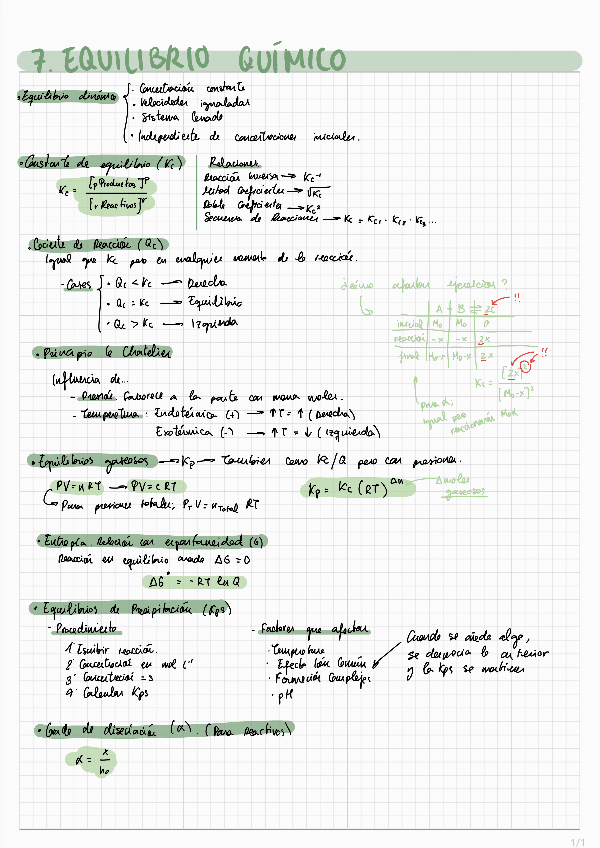 7. EQUILIBRIO QUÍMICO
• Equilibrio dinámico
· Concentración constante
· Velocidades igualadas
· Sistema Cerrado
· Independiente de concentraciones iniciales.
• Constante de equilibrio (Kc)
Kc = [p Productos]^p / [r Reactivos]^r
Relaciones
Reacción inversa → Kc⁻¹
Mitad Coeficientes → √Kc
Doble Coeficiente → Kc²
Secuencia de Reacciones → Kc = Kc1 · Kc2 · Kc3 ...
• Cociente de Reacción (Qc)
Igual que Kc pero en cualquier momento de la reacción.
- Casos
· Qc < Kc → Derecha
· Qc = Kc → Equilibrio
· Qc > Kc → Izquierda
¿Cómo afrontar ejercicios?
A + B ⇌ 2C !!
inicial M₀ M₀ 0
reacción -x -x 2x
final M₀-x M₀-x 2x
Kc = [2x]² / [M₀-x]² !!
para α,
igual pero
reaccionarán M₀α
• Principio le Chatelier
Influencia de...
- Presión: favorece a la parte con menos moles.
- Temperatura: Endotérmica (+) → ↑T = ↑ (Derecha)
Exotérmica (-) → ↑T = ↓ (Izquierda)
• Equilibrios gaseosos → Kp → También como Kc/Q pero con presiones.
PV = nRT → PV = cRT
Para presiones totales, P_T V = n_Total RT
Kp = Kc (RT)^Δn
Δ moles
gaseosos
• Entropía. Relación con espontaneidad (G)
Reacción en equilibrio cuando ΔG = 0
ΔG° = -RT ln Q
• Equilibrios de Precipitación (Kps)
- Procedimiento
1' Escribir reacción.
2' Concentración en mol L⁻¹
3' Concentración = s
4' Calcular Kps
- Factores que afectan
· Temperatura
· Efecto Ión Común
· Formación Complejos
· pH
Cuando se añade algo,
se desprecia lo anterior
y la Kps se mantiene
• Grado de disociación (α). (Para Reactivos)
α = x / n₀
1/1